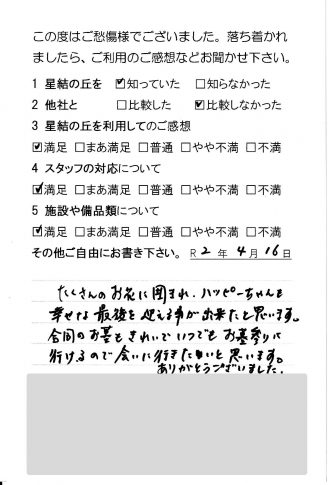 この度はご愁傷様でございました。落ち着かれ
ましたら、ご利用のご感想などお聞かせ下さい。
1 星結の丘を ☑知っていた □知らなかった
2 他社と □比較した ☑比較しなかった
3 星結の丘を利用してのご感想
☑満足 □まあ満足 □普通 □やや不満 □不満
4 スタッフの対応について
☑満足 □まあ満足 □普通 □やや不満 □不満
5 施設や備品類について
☑満足 □まあ満足 □普通 □やや不満 □不満
その他ご自由にお書き下さい。 R 2 年 4 月 16 日
たくさんのお花に囲まれ、ハッピーちゃんも
幸せな最後を迎える事が出来たと思います。
合同のお墓もきれいでいつでもお墓参りに
行けるので会いに行きたいと思います。
ありがとうございました。